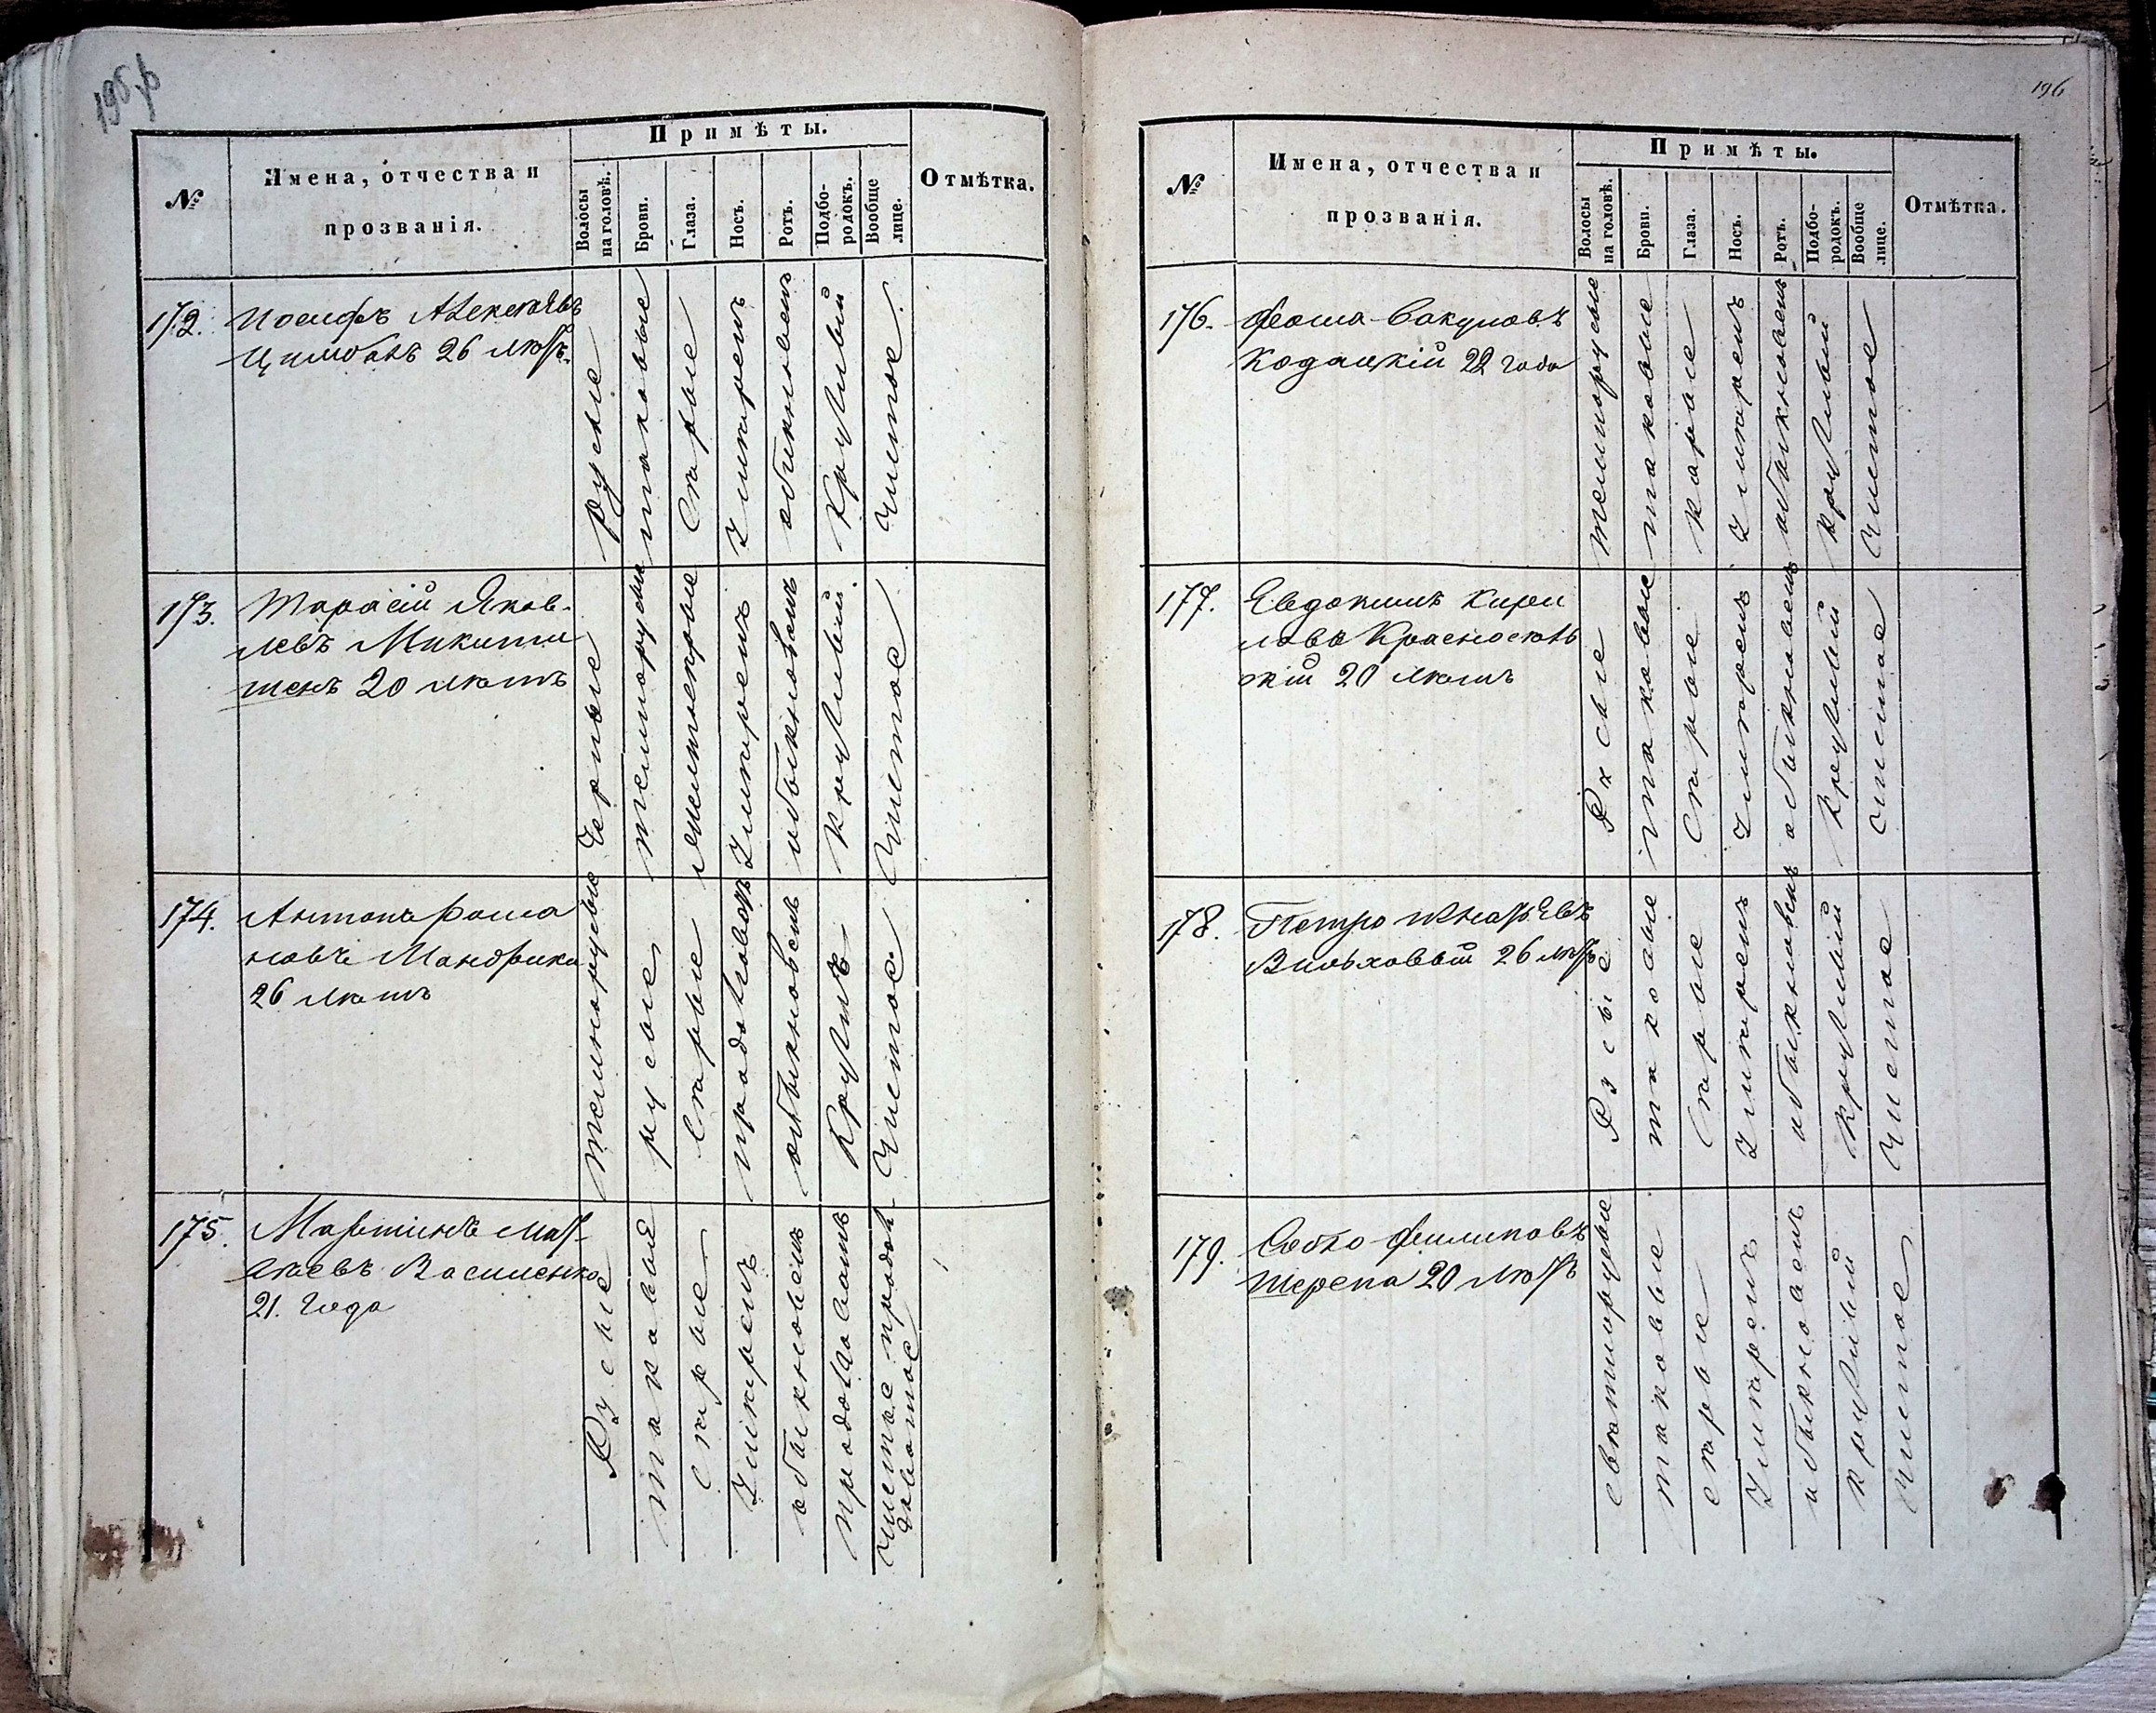 195об
№
Имена, отчества и
прозванія.
Примѣты.
Волосы
на головѣ.
Брови.
Глаза.
Носъ.
Ротъ.
Подбо-
родокъ.
Вообще
лице.
Отмѣтка.
172.
Иосифъ Алексѣевъ
Цимбалъ 26 лѣтъ.
русые
таковые
Сѣрые
Умѣренъ
обыкновенъ
Круглый
Чистое
173.
Тарасій Яков-
левъ Микити
шенъ 20 лѣтъ
Черные
темнорусы
свѣтлосѣрые
Умѣренъ
обыкновенъ
круглый
Чистое
174.
Антонъ Рома
новъ Мандрика
26 лѣтъ
темнорусые
русые
Сѣрые
продолговатъ
обыкновенъ
Круглый
Чистое
175.
Мартинъ Мат-
вѣевъ Василенко
21. года
Русые
таковые
сѣрые
Умѣренъ
обыкновенъ
продолговатъ
чистое продол-
говатое
196
№
Имена, отчества и
прозванія.
Примѣты.
Волосы
на головѣ.
Брови.
Глаза.
Носъ.
Ротъ.
Подбо-
родокъ.
Вообще
лице.
Отмѣтка.
176.
Фома Вакуловъ
Кодацкій 22 года
темнорусые
таковые
карые
Умѣренъ
обыкновенъ
круглый
Чистое
177.
Евдокимъ Кири
ловъ Красносель
скій 20 лѣтъ
Русые
таковые
Сѣрые
Умѣренъ
обыкновенъ
Круглый
Чистое
178.
Петро Игнатьевъ
Вильховый 26 лѣтъ
Русые
таковые
Сѣрые
Умѣренъ
обыкновенъ
круглый
Чистое
179.
Савко Филиповъ
Шерепа 20 лѣтъ
свѣтлорусые
таковые
сѣрые
Умѣренъ
обыкновенъ
круглый
Чистое